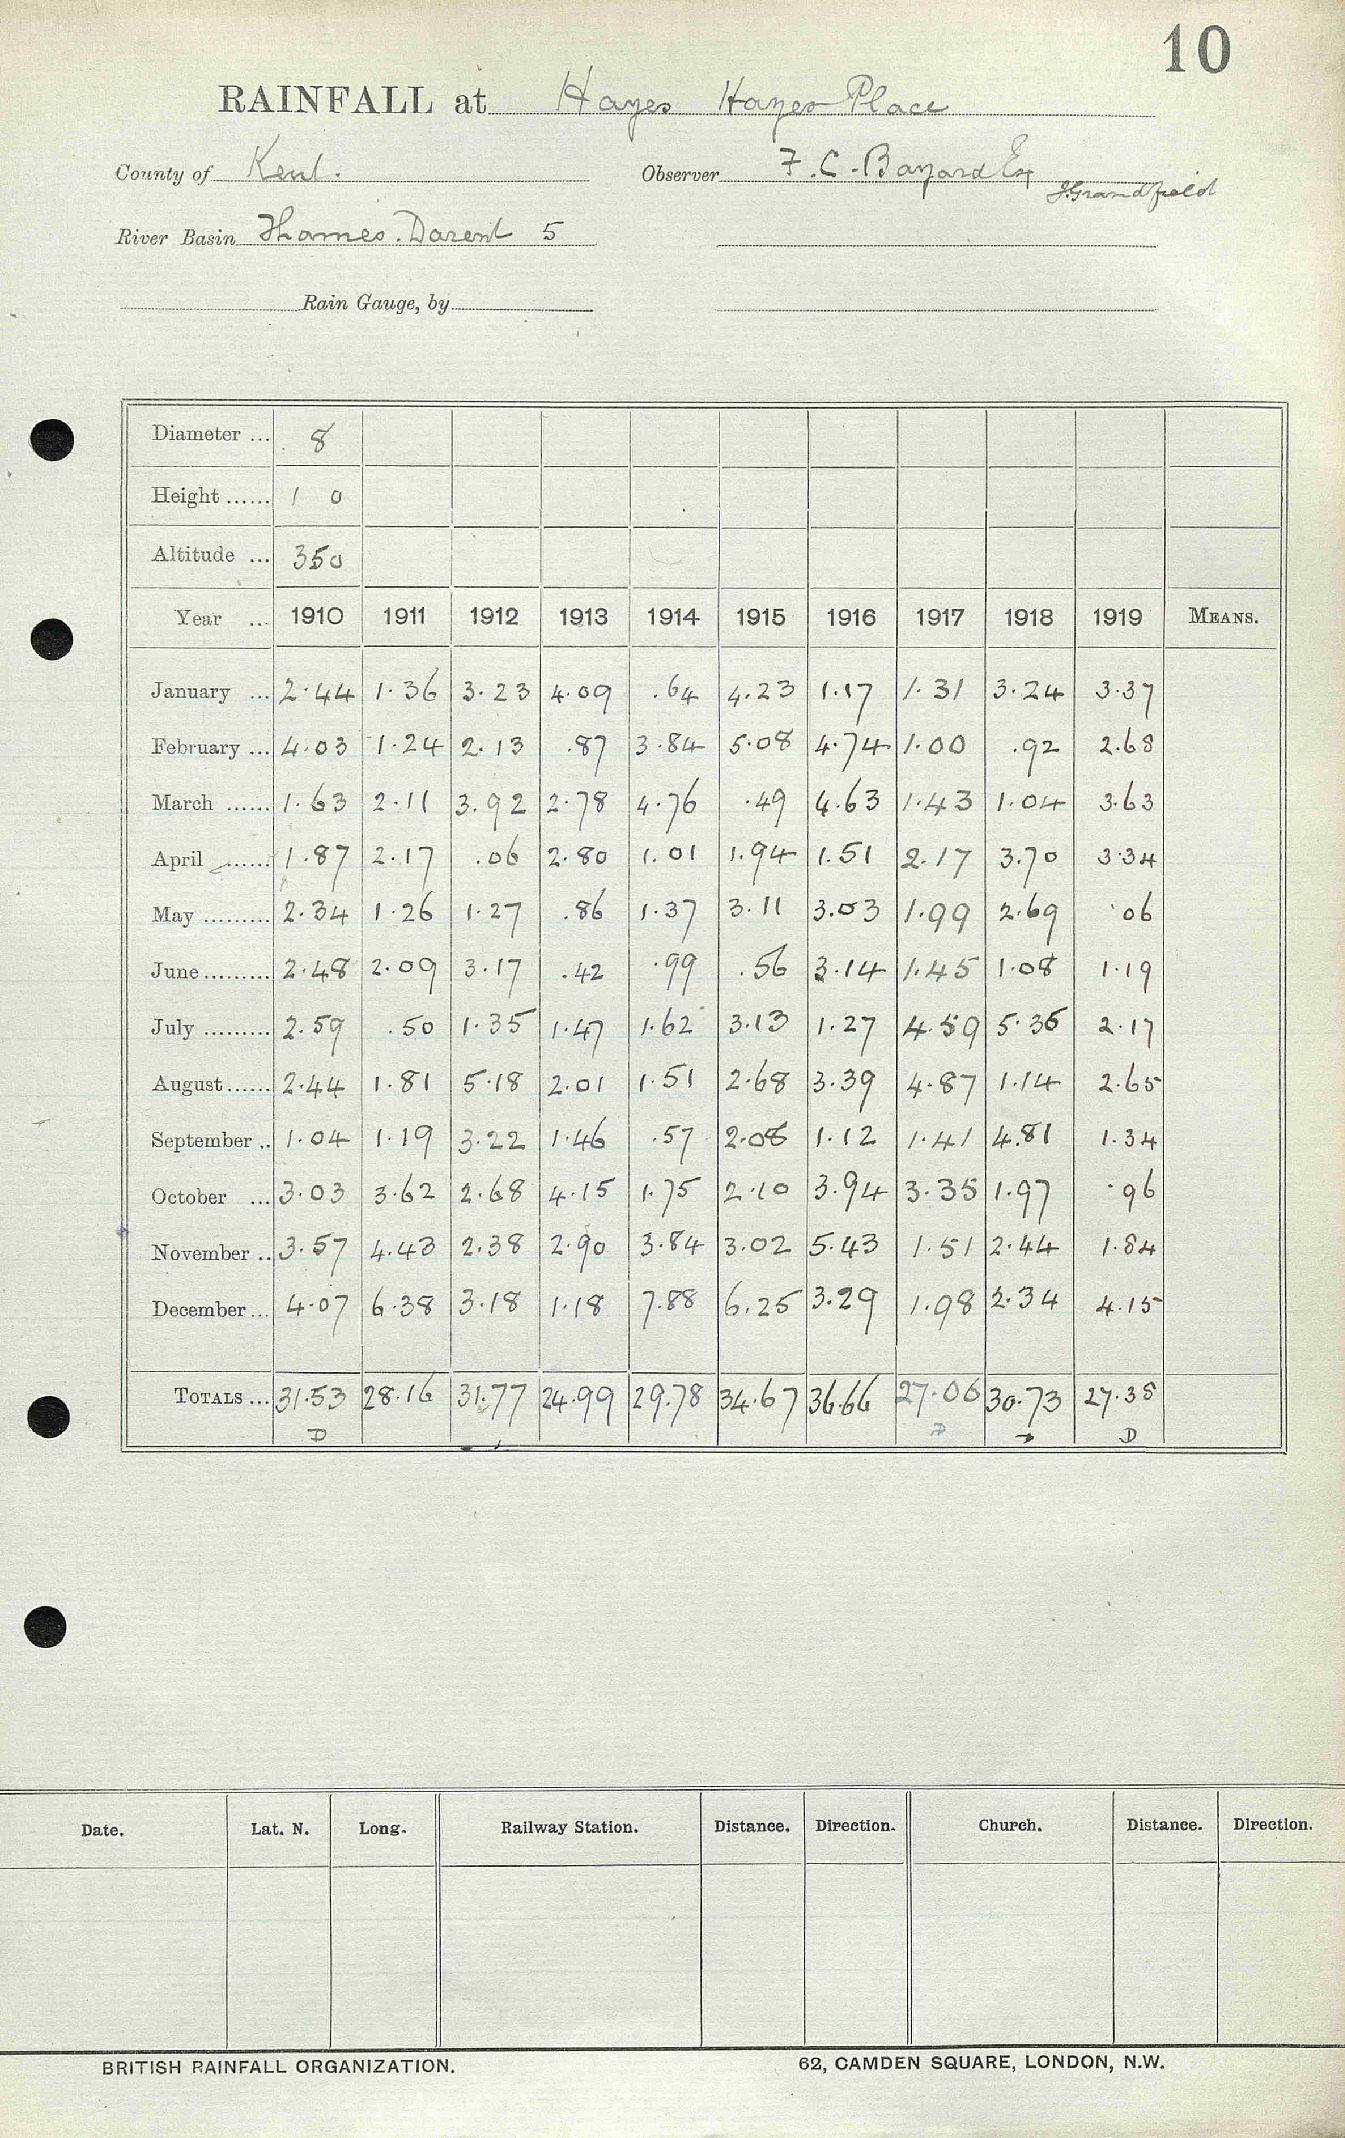 10
RAINFALL at Hayes Hayes Place
County of Kent. Observer F. C. Bayard Esq
J. Grandfield
River Basin Thames. Darent 5
Rain Gauge, by
Diameter ... 8
Height ...... 1 0
Altitude ... 350
Year ... 1910 1911 1912 1913 1914 1915 1916 1917 1918 1919 MEANS.
January ... 2.44 1.36 3.23 4.09 .64 4.23 1.17 1.31 3.24 3.37
February ... 4.03 1.24 2.13 .87 3.84 5.08 4.74 1.00 .92 2.68
March ...... 1.63 2.11 3.92 2.78 4.76 .49 4.63 1.43 1.04 3.63
April ...... 1.87 2.17 .06 2.80 1.01 1.94 1.51 2.17 3.70 3.34
May ......... 2.34 1.26 1.27 .86 1.37 3.11 3.03 1.99 2.69 .06
June ......... 2.48 2.09 3.17 .42 .99 .56 3.14 1.45 1.08 1.19
July ......... 2.59 .50 1.35 1.47 1.62 3.13 1.27 4.59 5.36 2.17
August ...... 2.44 1.81 5.18 2.01 1.51 2.68 3.39 4.87 1.14 2.65
September .. 1.04 1.19 3.22 1.46 .57 2.08 1.12 1.41 4.81 1.34
October ... 3.03 3.62 2.68 4.15 1.75 2.10 3.94 3.35 1.97 .96
November .. 3.57 4.43 2.38 2.90 3.84 3.02 5.43 1.51 2.44 1.84
December ... 4.07 6.38 3.18 1.18 7.88 6.25 3.29 1.98 2.34 4.15
TOTALS ... 31.53 28.16 31.77 24.99 29.78 34.67 36.66 27.06 30.73 27.38
D D D
Date. Lat. N. Long. Railway Station. Distance. Direction. Church. Distance. Direction.
BRITISH RAINFALL ORGANIZATION. 62, CAMDEN SQUARE, LONDON, N.W.